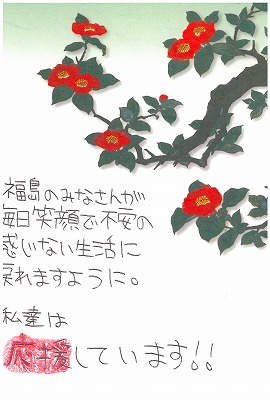 福島のみなさんが
毎日笑顔で不安の
感じない生活に
戻れますように。
私達は
応援しています!!